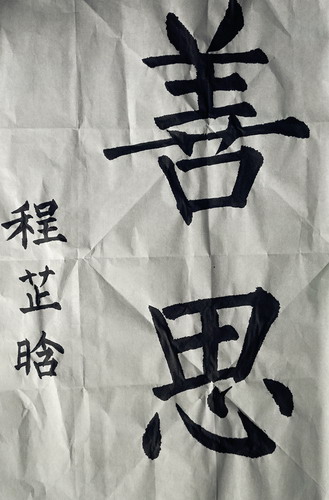 善思
程芷晗